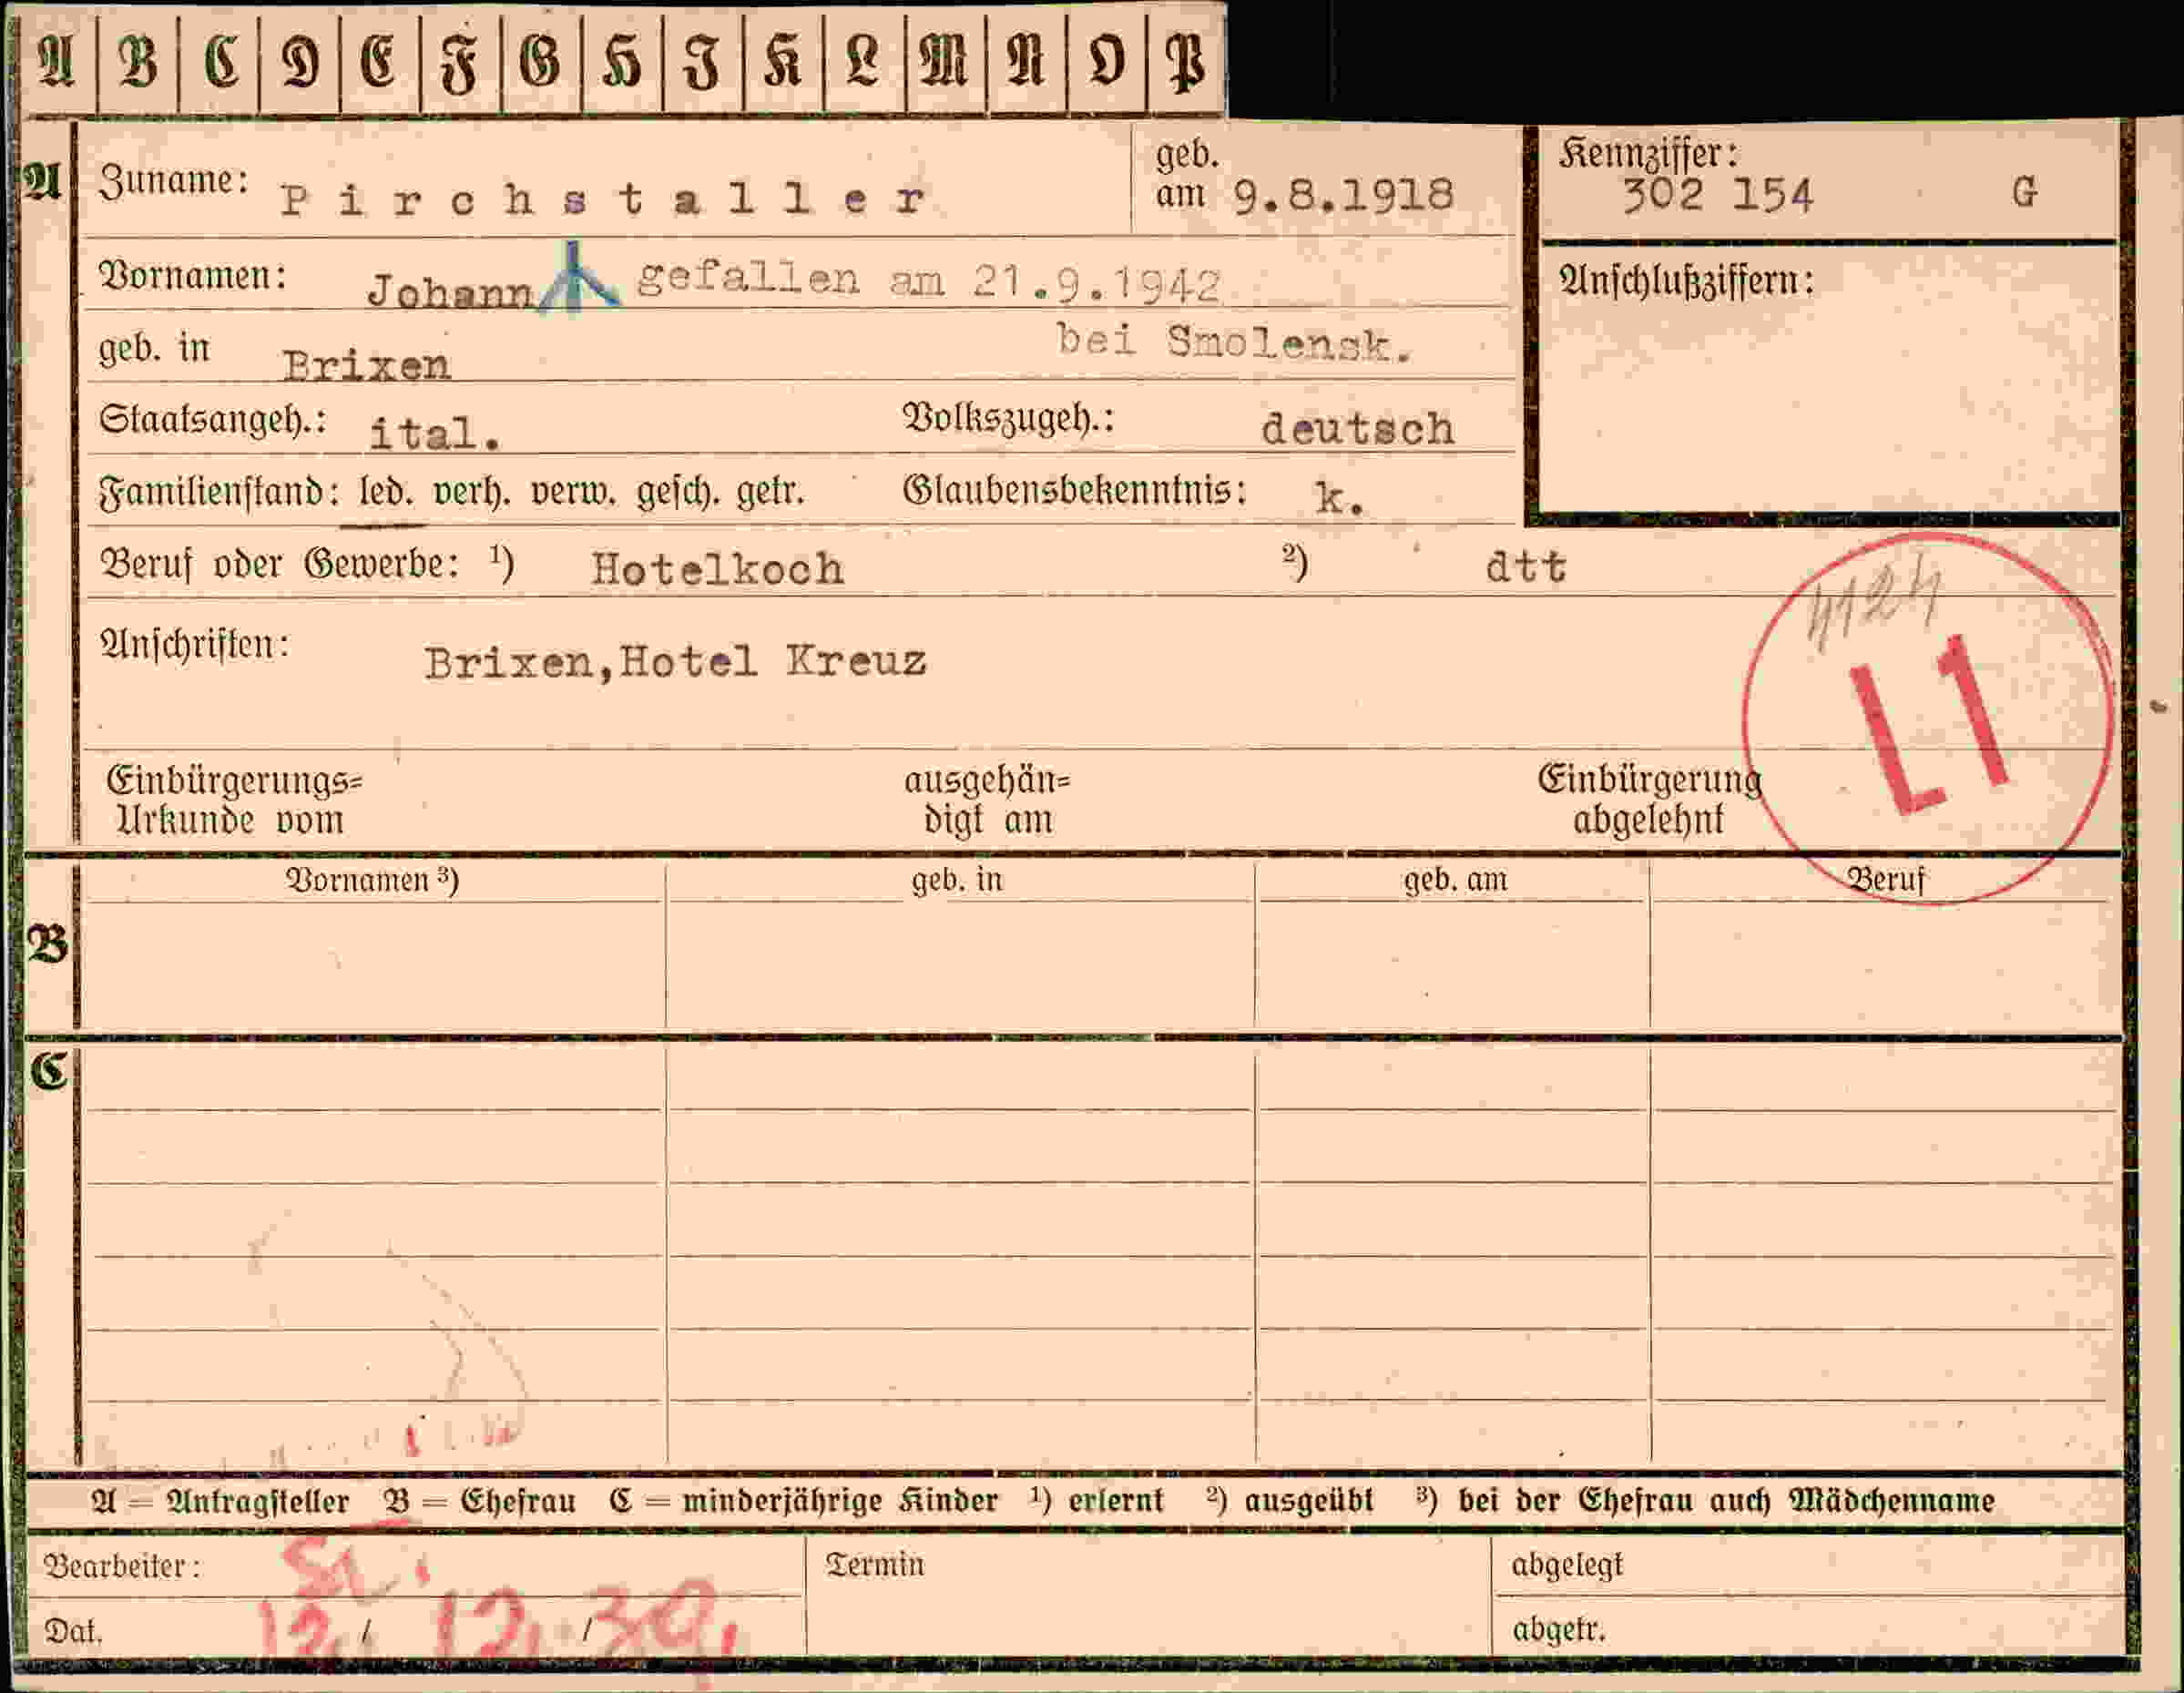 A B C D E F G H I K L M N O P
A Zuname: Pirchstaller geb. am 9.8.1918 Kennziffer: 302 154 G
Vornamen: Johann gefallen am 21.9.1942 Anschlußziffern:
geb. in Brixen bei Smolensk.
Staatsangeh.: ital. Volkszugeh.: deutsch
Familienstand: led. verh. verw. gesch. getr. Glaubensbekenntnis: k.
Beruf oder Gewerbe: ¹) Hotelkoch ²) dtt
4124
Anschriften: Brixen,Hotel Kreuz
L1
Einbürgerungs= ausgehän= Einbürgerung
Urkunde vom digt am abgelehnt
B Vornamen ³) geb. in geb. am Beruf
C
A = Antragsteller B = Ehefrau C = minderjährige Kinder ¹) erlernt ²) ausgeübt ³) bei der Ehefrau auch Mädchenname
Bearbeiter: Termin abgelegt
Dat. 12. / 12. / 39. abgetr.